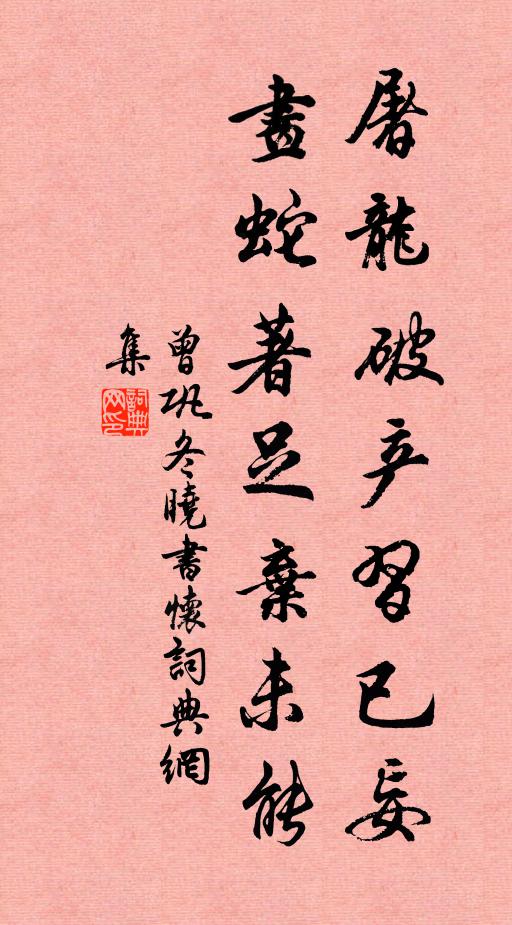 屠龍破产習已妄
畫蛇著足棄未能
曾巩冬曉書懷詞典網
集
詞典
网印